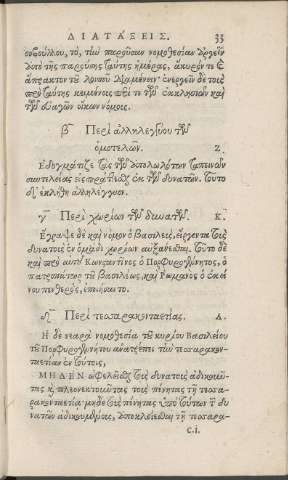 ΔΙΑΤΑΞΕΙΣ. 33
τὸ, τὴν παροῦσαν νομοθεσίαν ἀργεῖν
ἀπὸ τῆς παρούσης ταύτης ἡμέρας, ἄκυρόν τε ϗ
ἄπρακτον τοῦ λοιποῦ διαμένειν· ἐνεργεῖν δὲ τοὺς
πρὸ ταύτης κειμένους περὶ τε τῶν ἐκκλησιῶν καὶ
τῶν εὐαγῶν οἴκων νόμους.
β Περὶ ἀλληλεγγύου τῶν
ὁμοτελῶν. Ζ.
Ἐδογμάτιζε τὰς τῶν ἀπολωλότων ταπεινῶν
συντελείας εἰσπράττεσθαι ἐκ τῶν δυνατῶν. Τοῦτο
δὲ ἐκλήθη ἀλληλέγγυον.
γ Περὶ χωρίων τῶν δυνατῶν. Κ.
Ἔγραψε δὲ καὶ νόμον ὁ Βασιλεὺς, εἴργοντα τοὺς
δυνατοὺς ἐν ὁμάδι χωρίων αὐξάνεσθαι. Τοῦτο δὲ
καὶ πρὸ αὐτοῦ Κωνσταντῖνος ὁ Πορφυρογέννητος, ὁ
πατροπάτωρ τοῦ βασιλέως, καὶ Ῥωμανὸς ὁ ἐκεί
νου πενθερὸς, ἐποιήσαντο.
δ Περὶ τεσσαρακονταετίας. Λ.
Η δὲ νεαρὰ νομοθεσία τοῦ κυρίου Βασιλείου
τοῦ Πορφυρογεννήτου ἀνατρέπει τὴν τεσσαρακον-
ταετίαν ἐν τούτοις,
ΜΗΔΕΝ ὠφελεῖσθαι τοὺς δυνατοὺς ἀδικοῦν-
τας ϗ πλεονεκτοῦντας τοὺς πένητας τῇ τεσσα-
ρακονταετίᾳ· μηδὲ τοὺς πένητας ὑπὸ τούτων τῶν δυ
νατῶν ἀδικουμένους, ἀποκλείεσθαι τῇ τεσσαρα-
C.i.